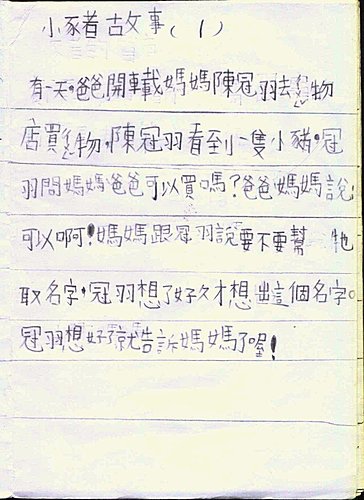 小豕者古故事(1)
有一天,爸爸開車載媽媽陳冠羽去ㄔㄨㄥˇ物
店買ㄔㄨㄥˇ物,陳冠羽看到小隻小豬。冠
羽問媽媽爸爸可以買嗎?爸爸媽媽說
可以啊!媽媽跟冠羽說要不要幫 牠
取名字,冠羽想了好久才想出這個名字。
冠羽想好了就告訴媽媽了喔!